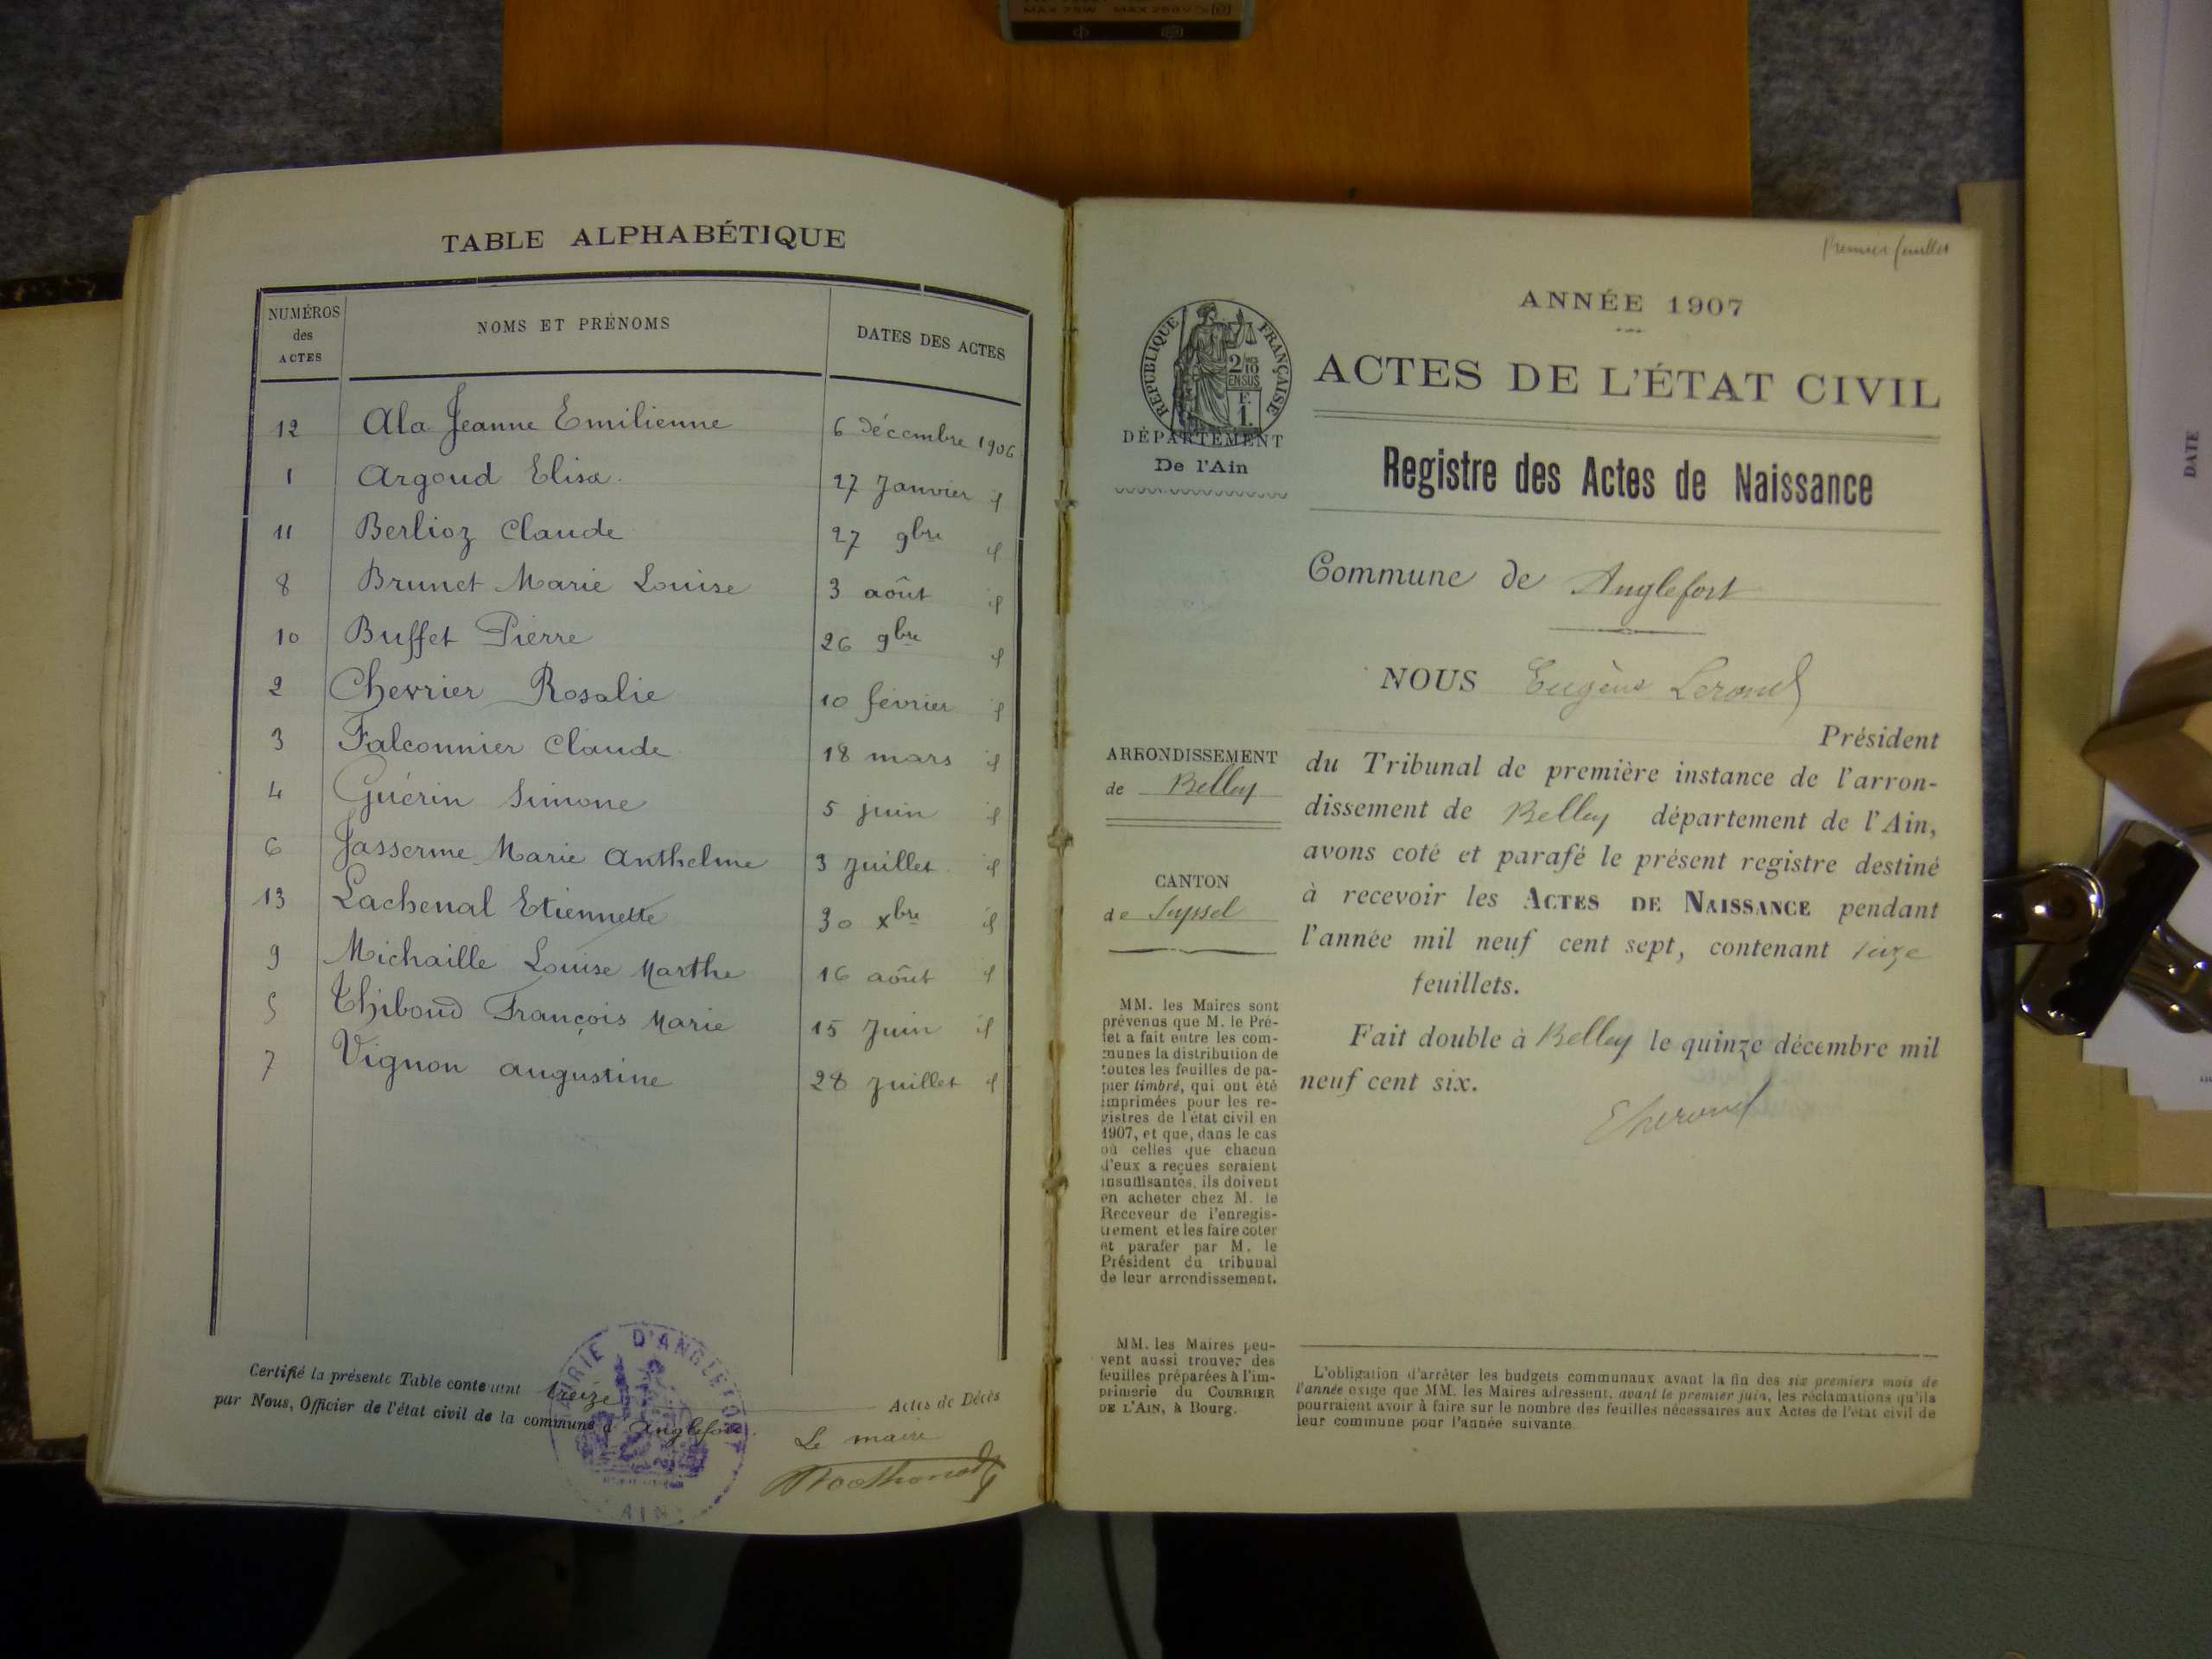 MAX 75W MAX 250V
TABLE ALPHABÉTIQUE
NUMÉROS
des
ACTES
NOMS ET PRÉNOMS
DATES DES ACTES
12 Ala Jeanne Emilienne 6 décembre 1906
1 Argoud Elisa 27 Janvier id
11 Berlioz Claude 27 9bre id
8 Brunet Marie Louise 3 août id
10 Buffet Pierre 26 9bre id
2 Chevrier Rosalie 10 février id
3 Falconnier Claude 18 mars id
4 Guérin Simone 5 juin id
6 Jasserme Marie Anthelme 3 Juillet id
13 Lachenal Etiennette 30 xbre id
9 Michaille Louise Marthe 16 août id
5 Thiboud François Marie 15 Juin id
7 Vignon augustine 28 Juillet id
Certifié la présente Table contenant treize Actes de Décès
par Nous, Officier de l'état civil de la commune d'Anglefort.
Le maire
MAIRIE D'ANGLEFORT
AIN
Premier feuillet
ANNÉE 1907
RÉPUBLIQUE FRANÇAISE
2/10
EN SUS
F.
1.
ACTES DE L'ÉTAT CIVIL
DÉPARTEMENT
De l'Ain
Registre des Actes de Naissance
Commune de Anglefort
NOUS Eugène Lerond
Président
du Tribunal de première instance de l'arron-
dissement de Belley département de l'Ain,
avons coté et parafé le présent registre destiné
à recevoir les ACTES DE NAISSANCE pendant
l'année mil neuf cent sept, contenant seize
feuillets.
Fait double à Belley le quinze décembre mil
neuf cent six.
ELerond
ARRONDISSEMENT
de Belley
CANTON
de Seyssel
MM. les Maires sont
prévenus que M. le Pré-
fet a fait entre les com-
munes la distribution de
toutes les feuilles de pa-
pier timbré, qui ont été
imprimées pour les re-
gistres de l'état civil en
1907, et que, dans le cas
où celles que chacun
d'eux a reçues seraient
insuffisantes, ils doivent
en acheter chez M. le
Receveur de l'enregis-
trement et les faire coter
et parafer par M. le
Président du tribunal
de leur arrondissement.
MM. les Maires peu-
vent aussi trouver des
feuilles préparées à l'im-
primerie du COURRIER
DE L'AIN, à Bourg.
L'obligation d'arrêter les budgets communaux avant la fin des six premiers mois de
l'année exige que MM. les Maires adressent, avant le premier juin, les réclamations qu'ils
pourraient avoir à faire sur le nombre des feuilles nécessaires aux Actes de l'état civil de
leur commune pour l'année suivante.
DATE